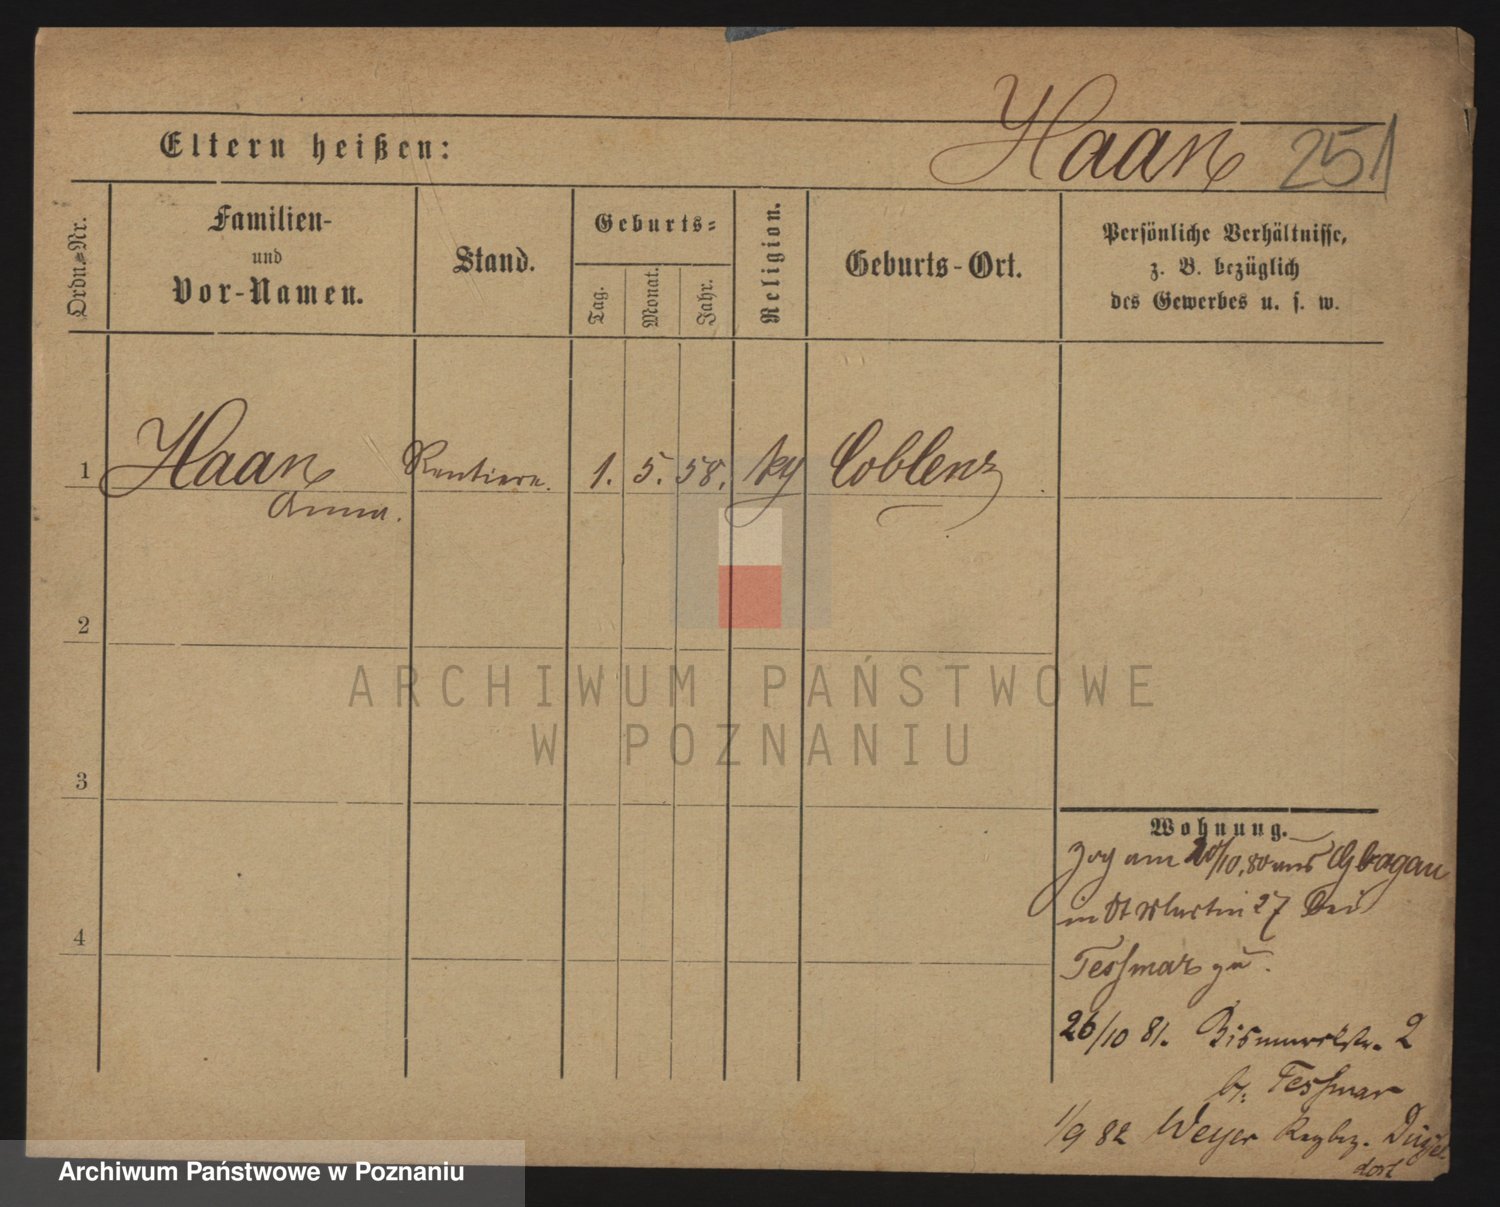 Eltern heißen:
Haan 251
Ordn.=Nr.
Familien-
und
Vor-Namen.
Stand.
Geburts=
Tag.
Monat.
Jahr.
Religion.
Geburts-Ort.
Persönliche Verhältnisse,
z. B. bezüglich
des Gewerbes u. s. w.
1 Haan Rentiere. 1. 5. 58. Coblenz
Anna.
2
3
4
Wohnung.
Zog am 20/10.80 aus
in St Martin 27 bei
Tessmar zu.
26/10 81. Bismarckstr. 2
b. Tessmar
1/9 82 Weyer Regbez. Düssel
dorf
ARCHIWUM PAŃSTWOWE
W POZNANIU
Archiwum Państwowe w Poznaniu